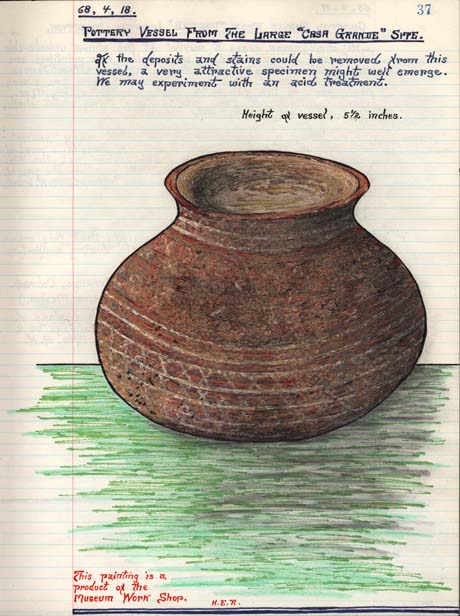 68, 4, 18.
37
Pottery Vessel From The Large "Casa Grande" Site.
If the deposits and stains could be removed from this
vessel, a very attractive specimen might well emerge.
We may experiment with an acid treatment.
Height of vessel, 5 1/2 inches.
This painting is a
product of the
Museum Work Shop.
H.E.R.